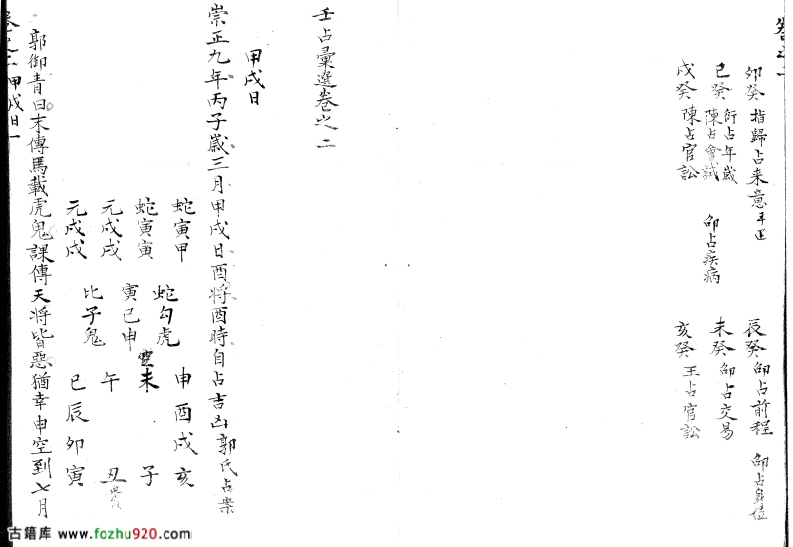 卷之二
卯癸 指歸占來意
辰癸 邵占前程 邵占身位
巳癸 衍占年歲 陳占會試 邵占疾病
未癸 邵占交易
戌癸 陳占官訟
亥癸 王占官訟
壬占彙選卷之二
甲戌日
崇正九年丙子歲三月甲戌日酉將酉時自占吉凶郭氏占案
蛇寅甲
蛇寅寅
元戌戌
元戌戌
蛇勾虎
寅巳申
比子鬼
申酉戌亥
空未 子
午 丑貴
巳辰卯寅
郭御青曰末傳馬載虎鬼課傳天將皆惡猶幸申空到七月
卷之二 甲戌日 一
古籍库 www.fozhu920.com